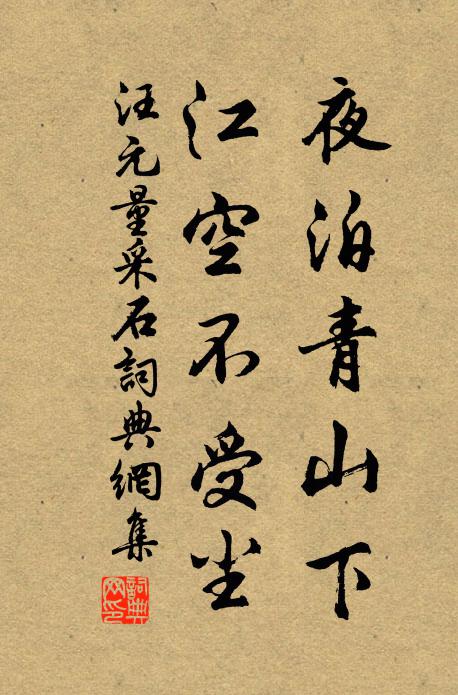 夜泊青山下
江空不受尘
汪元量采石詞典網集
詞典
网印